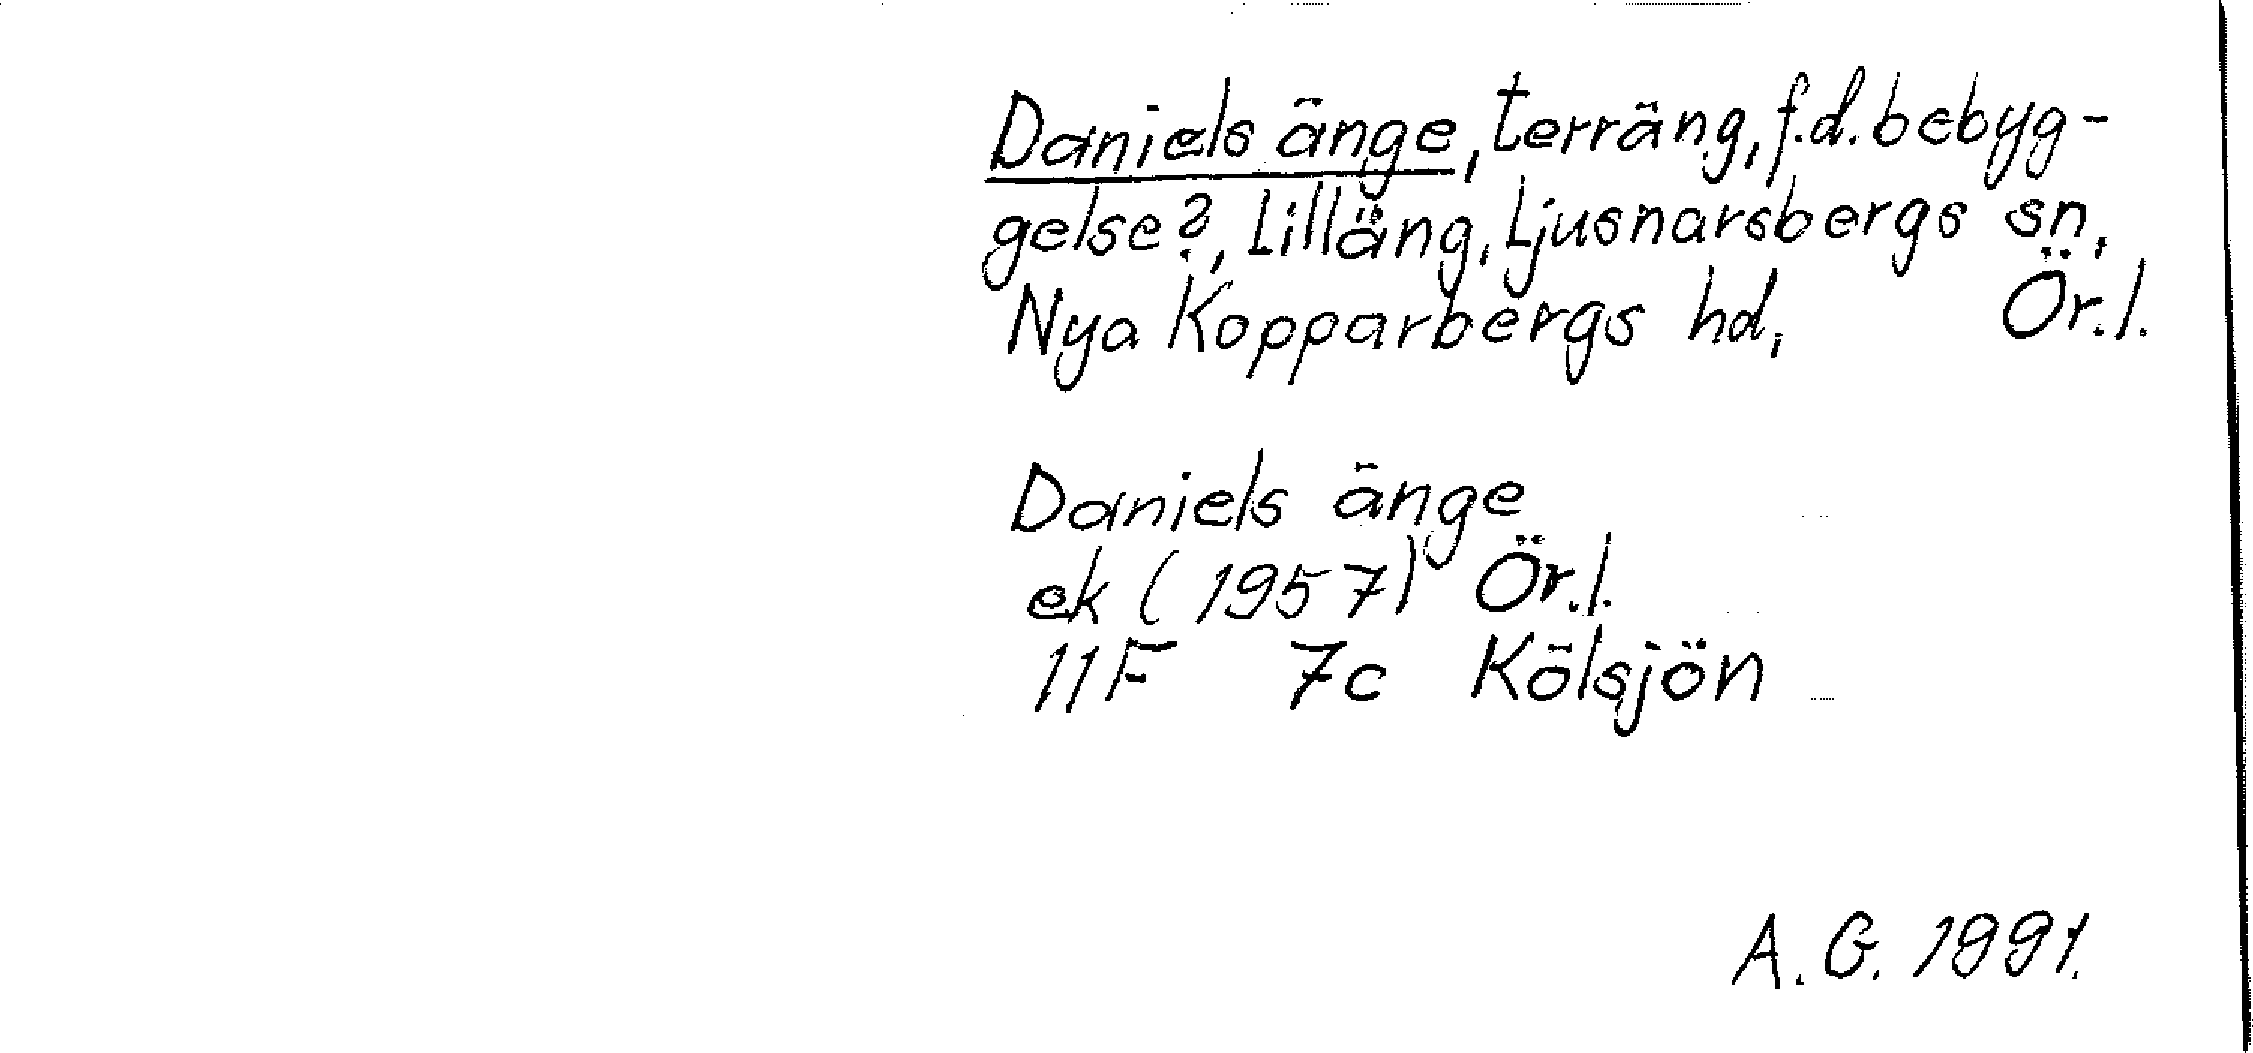 Daniels änge, terräng, f.d. bebyg-
gelse?, Lilläng, Ljusnarsbergs sn,
Nya Kopparbergs hd, Ör.l.
Daniels änge
ek (1957) Ör.l.
11F 7c Kölsjön
A.G. 1991.